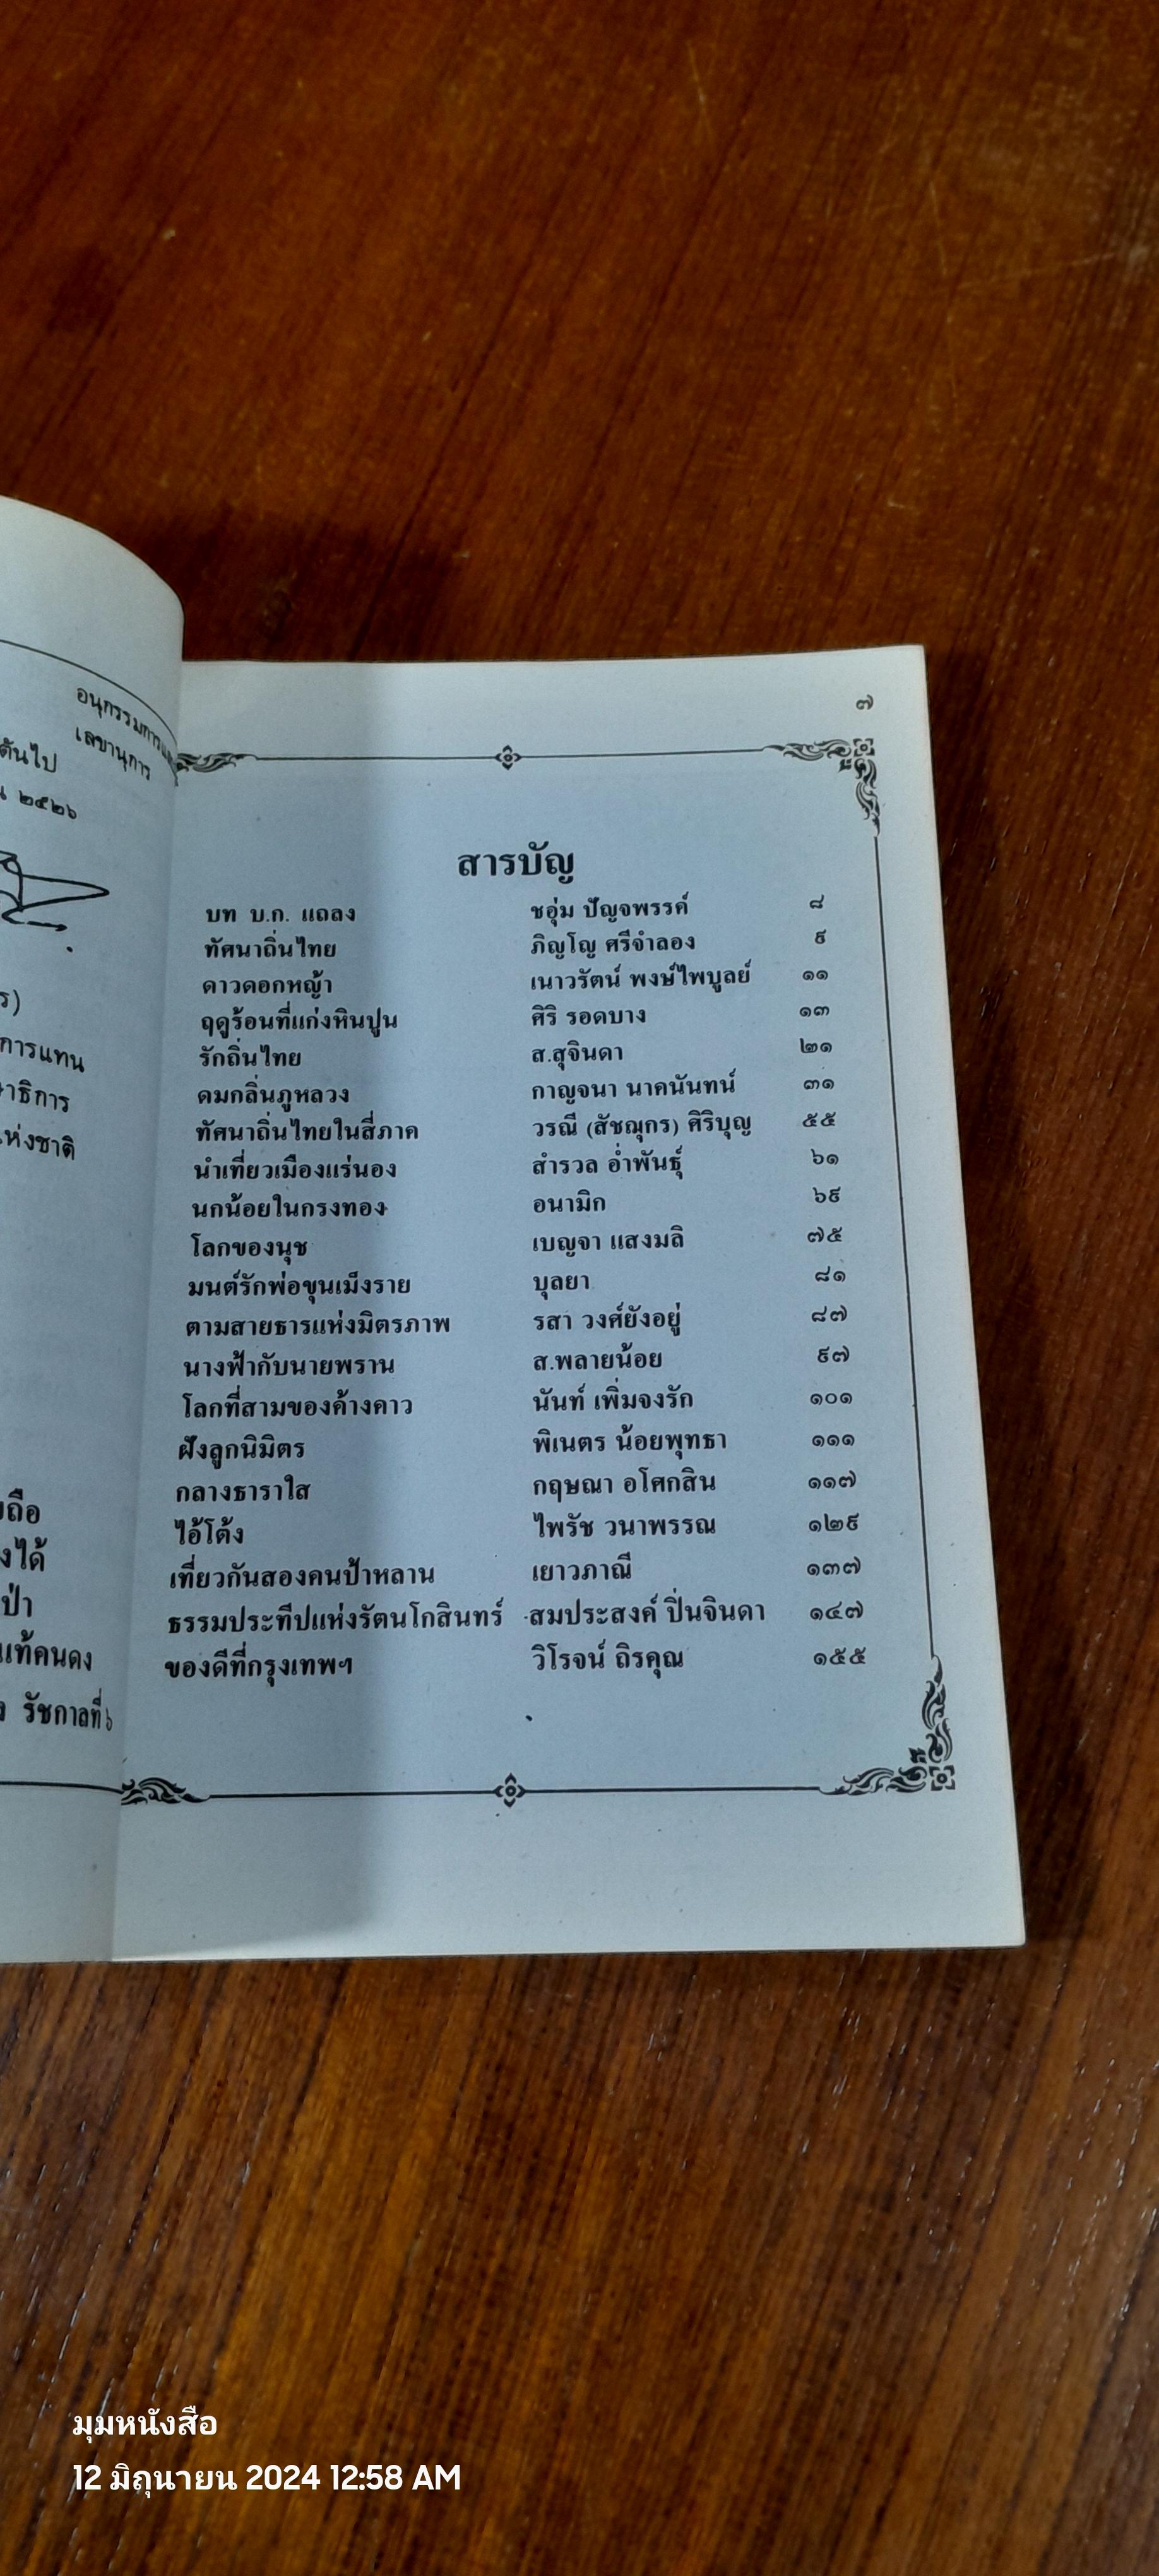 อนุกรรมการ
เลขานุการ
ต้นไป
๒๕๒๖
ร)
การแทน
าธิการ
ห่งชาติ
ถือ
งได้
ป่า
แท้คนดง
รัชกาลที่ ๖
๗
สารบัญ
บท บ.ก. แถลง ชอุ่ม ปัญจพรรค์ ๘
ทัศนาถิ่นไทย ภิญโญ ศรีจำลอง ๙
ดาวดอกหญ้า เนาวรัตน์ พงษ์ไพบูลย์ ๑๑
ฤดูร้อนที่แก่งหินปูน ศิริ รอดบาง ๑๓
รักถิ่นไทย ส.สุจินดา ๒๑
ดมกลิ่นภูหลวง กาญจนา นาคนันทน์ ๓๑
ทัศนาถิ่นไทยในสี่ภาค วรณี (สัชฌุกร) ศิริบุญ ๕๕
นำเที่ยวเมืองแร่นอง สำรวล อ่ำพันธุ์ ๖๑
นกน้อยในกรงทอง อนามิก ๖๙
โลกของนุช เบญจา แสงมลิ ๗๕
มนต์รักพ่อขุนเม็งราย บุลยา ๘๑
ตามสายธารแห่งมิตรภาพ รสา วงศ์ยังอยู่ ๘๗
นางฟ้ากับนายพราน ส.พลายน้อย ๙๗
โลกที่สามของค้างคาว นันท์ เพิ่มจงรัก ๑๐๑
ฝังลูกนิมิตร พิเนตร น้อยพุทธา ๑๑๑
กลางธาราใส กฤษณา อโศกสิน ๑๑๗
ไอ้โต้ง ไพรัช วนาพรรณ ๑๒๙
เที่ยวกันสองคนป้าหลาน เยาวภาณี ๑๓๗
ธรรมประทีปแห่งรัตนโกสินทร์ สมประสงค์ ปิ่นจินดา ๑๔๗
ของดีที่กรุงเทพฯ วิโรจน์ ถิรคุณ ๑๕๕
มุมหนังสือ
12 มิถุนายน 2024 12:58 AM